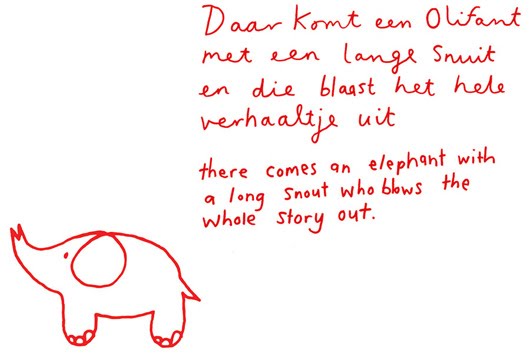 Daar komt een Olifant
met een lange Snuit
en die blaast het hele
verhaaltje uit
there comes an elephant with
a long snout who blows the
whole story out.